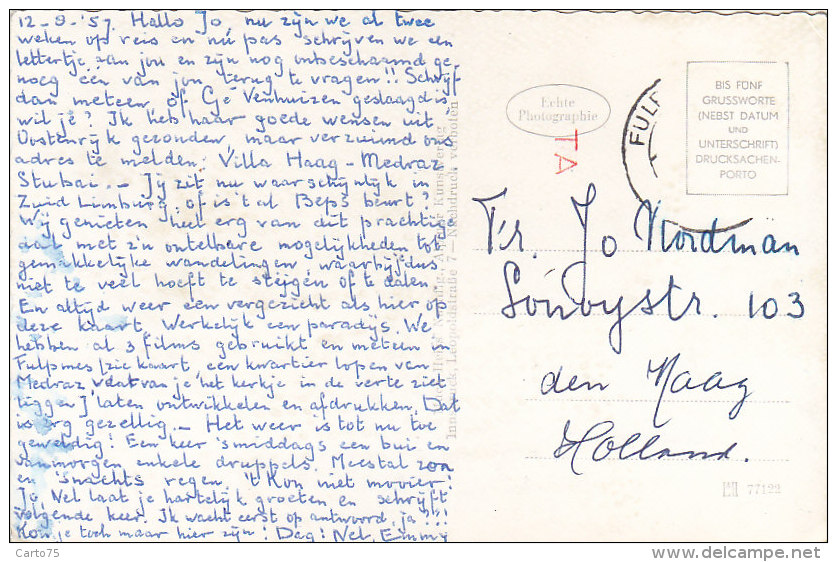 12-8-'57. Hallo Jo, nu zijn we al twee
weken op reis en nu pas schrijven we een
lettertje aan jou en zijn nog onbeschaamd ge-
noeg één van jou terug te vragen!! Schrijf
dan meteen, of Cjé Venhuizen geslaagd is,
wil je? Ik heb haar goede wensen uit
Oostenrijk gezonden, maar verzuimd ons
adres te melden: Villa Haag - Medraz
Stubai. - Jij zit nu waarschijnlijk in
Zuid Limburg, of is 't al Beps beurt?
Wij genieten heel erg van dit prachtige
dal met z'n ontelbare mogelijkheden tot
gemakkelijke wandelingen, waarbij dus
niet te veel hoeft te stijgen of te dalen.
En altijd weer een vergezicht als hier op
deze kaart. Werkelijk een paradijs. We
hebben al 3 films gebruikt en meteen in
Fulpmes [zie kaart, een kwartier lopen van
Medraz, vdat van je 't kerkje in de verte ziet
liggen] laten ontwikkelen en afdrukken. Dat
is erg gezellig. - Het weer is tot nu toe
geweldig! Een keer 's middags een bui en
vanmorgen enkele druppels. Meestal zon
en 's nachts regen. 't Kon niet mooier!
Jo, Nel laat je hartelijk groeten en schrijft
volgende keer. Ik wacht eerst op antwoord, ja?!!
Kon je toch maar hier zijn! Dag! Nel, Emmy
Leopoldstraße 7 - Nachdruck verboten
Echte
Photographie
TA
FULP
BIS FÜNF
GRUSSWORTE
(NEBST DATUM
UND
UNTERSCHRIFT)
DRUCKSACHEN-
PORTO
Fr. Jo Nordman
103
den Haag
Holland.
77122
Carto75
www.delcampe.net